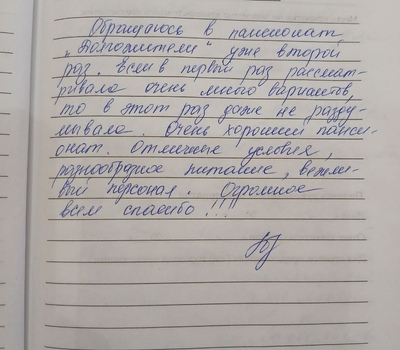 Обращаюсь в пансионат
„Долгожители“ уже второй
раз. Если в первый раз рассмат-
ривала очень много вариантов,
то в этот раз даже не разду-
мывала. Очень хороший панси-
онат. Отличные условия,
разнообразное питание, вежли-
вый персонал. Огромное
всем спасибо!!!